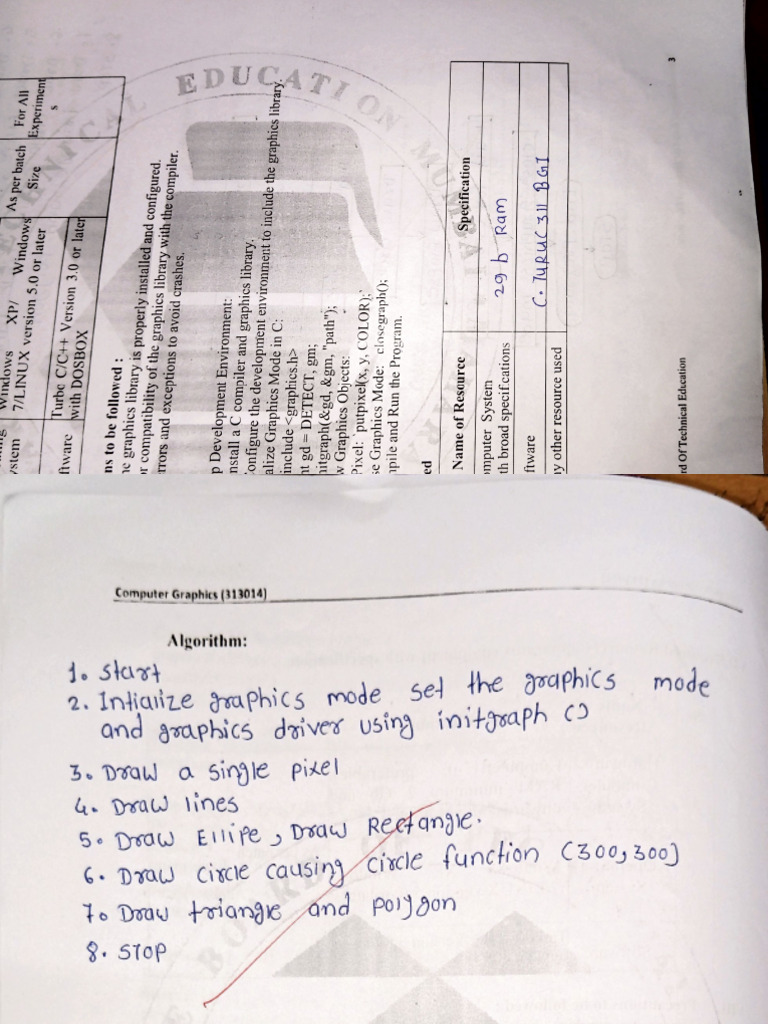 Windows XP/ Windows
7/LINUX version 5.0 or later
As per batch
Size
For All
Experiment
s
stem
ftware
Turbc C/C++ Version 3.0 or later
with DOSBOX
ns to be followed :
graphics library is properly installed and configured.
r compatibility of the graphics library with the compiler.
rrors and exceptions to avoid crashes.
p Development Environment:
nstall a C compiler and graphics library.
onfigure the development environment to include the graphics library.
alize Graphics Mode in C:
include <graphics.h>
nt gd = DETECT, gm;
nitgraph(&gd, &gm, "path");
w Graphics Objects:
Pixel: `putpixel(x, y, COLOR);`
se Graphics Mode: closegraph();
npile and Run the Program.
ed
Name of Resource Specification
mputer System
th broad specifications
2gb Ram
ftware
C. TURUC 311 BGI
ny other resource used
rd Of Technical Education
3
TECHNICAL EDUCATION MUMBAI
Computer Graphics (313014)
Algorithm:
1. Start
2. Intialize graphics mode set the graphics mode
and graphics driver using initgraph ()
3. Draw a single pixel
4. Draw lines
5. Draw Ellipe, Draw Rectangle.
6. Draw circle causing circle function (300,300)
7. Draw triangle and polygon
8. STOP
BOARD